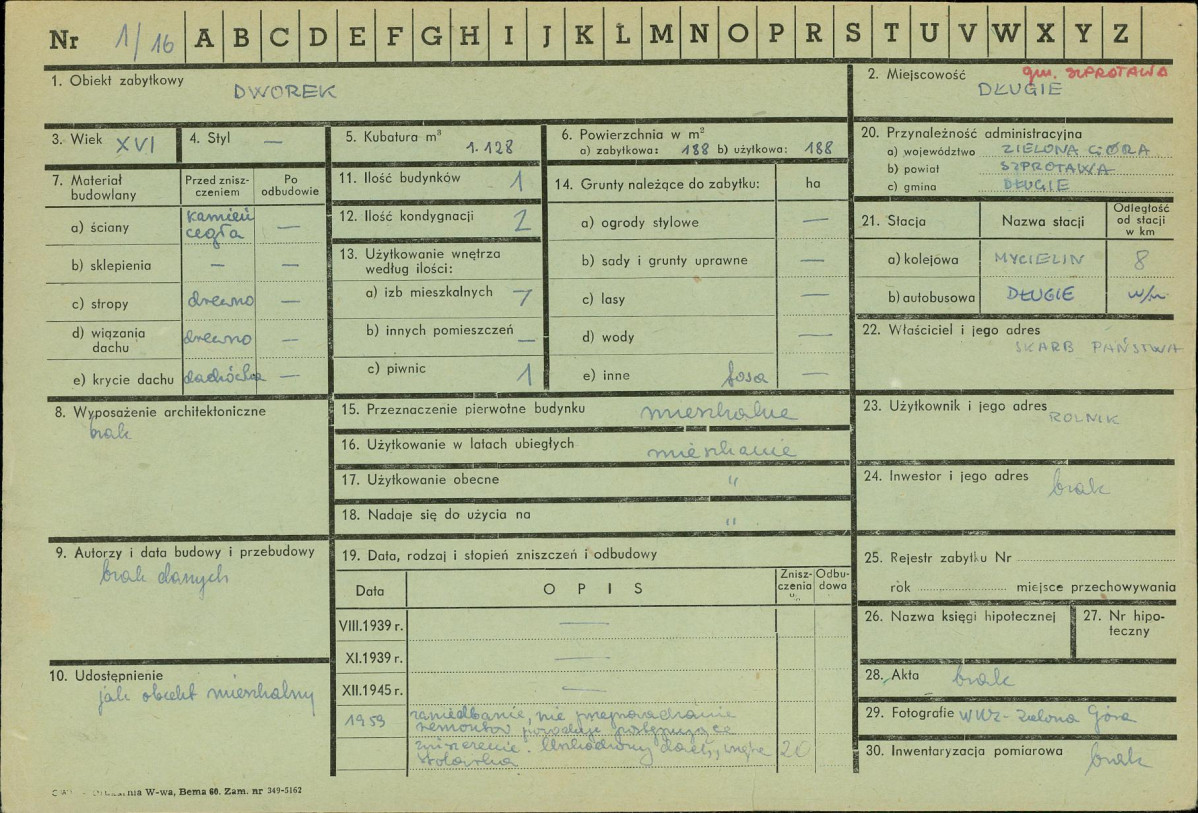 Nr 1/16 A B C D E F G H I J K L M N O P R S T U V W X Y Z
1. Obiekt zabytkowy
DWOREK
2. Miejscowość gm. SZPROTAWA
DŁUGIE
3. Wiek XVI
4. Styl —
5. Kubatura m³
1.128
6. Powierzchnia w m²
a) zabytkowa: 188 b) użytkowa: 188
7. Materiał budowlany
Przed zniszczeniem
Po odbudowie
a) ściany kamień cegła —
b) sklepienia — —
c) stropy drewno —
d) wiązania dachu drewno —
e) krycie dachu dachówka —
8. Wyposażenie architektoniczne
brak
9. Autorzy i data budowy i przebudowy
brak danych
10. Udostępnienie
jak obiekt mieszkalny
11. Ilość budynków 1
12. Ilość kondygnacji 2
13. Użytkowanie wnętrza
według ilości:
a) izb mieszkalnych 7
b) innych pomieszczeń —
c) piwnic 1
14. Grunty należące do zabytku: ha
a) ogrody stylowe —
b) sady i grunty uprawne —
c) lasy —
d) wody —
e) inne fosa —
15. Przeznaczenie pierwotne budynku mieszkalne
16. Użytkowanie w latach ubiegłych mieszkanie
17. Użytkowanie obecne "
18. Nadaje się do użycia na "
19. Data, rodzaj i stopień zniszczeń i odbudowy
Data OPIS Zniszczenia Odbudowa
VIII.1939 r. —
XI.1939 r. —
XII.1945 r. —
1959 zaniedbanie, nie przeprowadzanie
remontów powoduje postępujące
zniszczenie. Uszkodzony dach, 20
stolarka
20. Przynależność administracyjna
a) województwo ZIELONA GÓRA
b) powiat SZPROTAWA
c) gmina DŁUGIE
21. Stacja Nazwa stacji Odległość od stacji w km
a) kolejowa MYCIELIN 8
b) autobusowa DŁUGIE w/m
22. Właściciel i jego adres
SKARB PAŃSTWA
23. Użytkownik i jego adres
ROLNIK
24. Inwestor i jego adres
brak
25. Rejestr zabytku Nr
rok miejsce przechowywania
26. Nazwa księgi hipotecznej
27. Nr hipoteczny
28. Akta brak
29. Fotografie WKZ-Zielona Góra
30. Inwentaryzacja pomiarowa
brak
W-wa, Bema 60. Zam. nr 349-5162